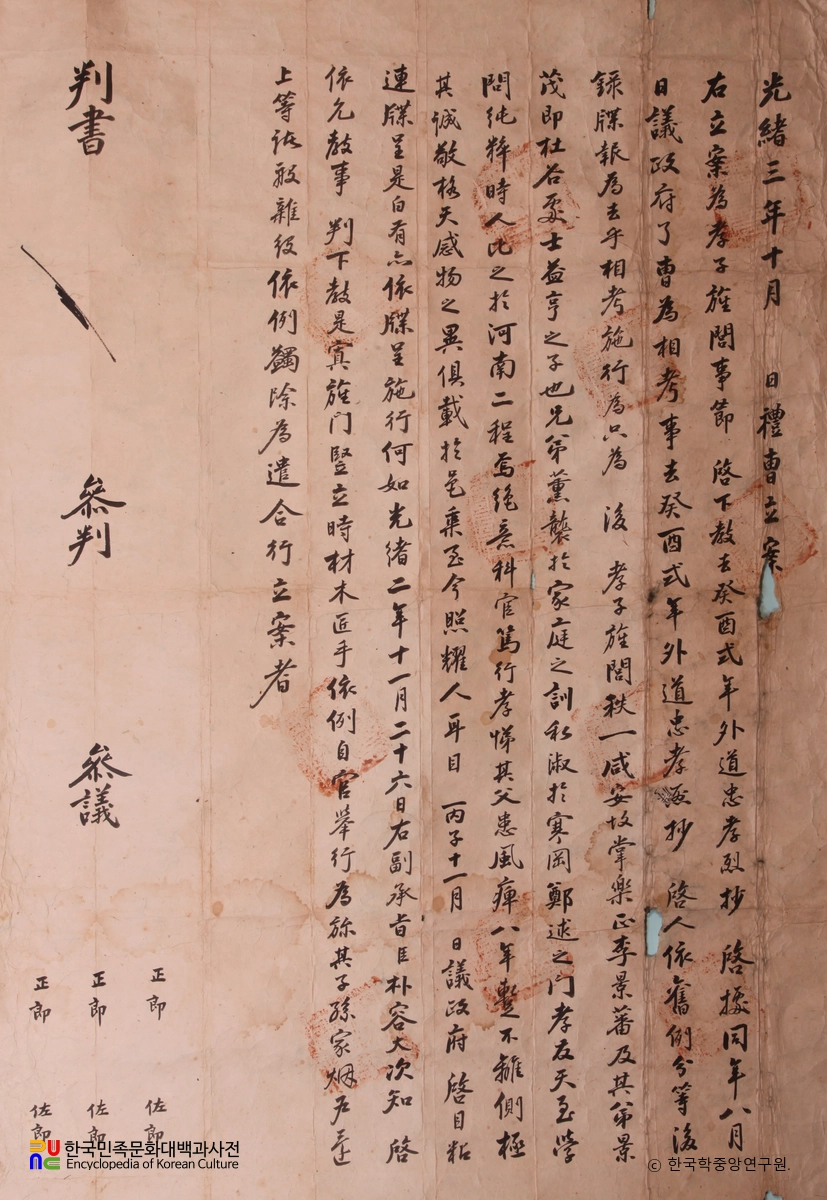 光緖三年十月 日禮曹立案
右立案爲孝子旌閭事節 啓下敎去癸酉式年外道忠孝烈抄 啓據同年八月
日議政府了曹爲相考事去癸酉式年外道忠孝烈抄 啓人依舊例分等後
錄牒報爲去乎相考施行爲只爲 後 孝子旌閭秩一咸安故掌樂正李景蕃及其弟景
茂卽杜谷處士益亨之子也兄弟薰襲於家庭之訓私淑於寒岡鄭逑之門孝友天至學
問純粹時人比之於河南二程焉絶意科官篤行孝悌其父患風痺八年暫不離側極
其誠敬格天感物之異俱載於邑乘至今照耀人耳目 丙子十一月 日議政府 啓目粘
連牒呈是白有亦依牒呈施行何如光緖二年十一月二十六日右副承旨臣朴容大次知 啓
依允敎事 判下敎是寘旌门竪立時材木匠手依例自官擧行爲旀其子孫家烟戶還
上等諸般雜役依例蠲除爲遣合行立案者
判書
參判
參議
正郎
正郎
正郎
佐郎
佐郎
佐郎
한국민족문화대백과사전
Encyclopedia of Korean Culture
© 한국학중앙연구원.